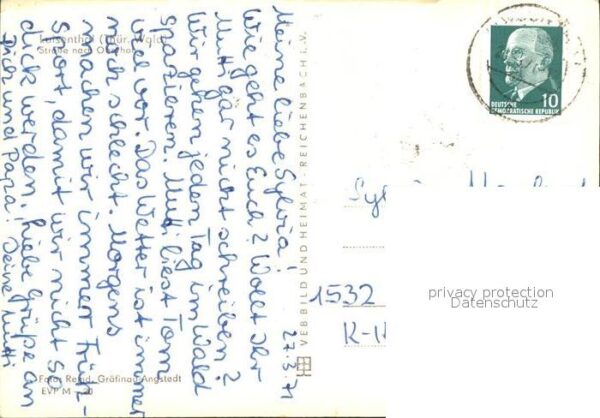 Luisenthal (Thür. Wald)
Straße nach Oberhof
27.3.71
Meine liebe Sylvia!
Wie geht es Euch? Wollt Ihr
Mutti gar nicht schreiben?
Wir gehen jeden Tag im Wald
spazieren. Mutti liest Tom
viel vor. Das Wetter ist immer
noch schlecht. Morgens
machen wir immer Früh-
sport, damit wir nicht so
dick werden. Liebe Grüße an
Dich und Papa! Deine Mutti
Foto: Reind, Gräfinau-Angstedt
EVP M -,20
VEB BILD UND HEIMAT · REICHENBACH i. V.
DEUTSCHE
DEMOKRATISCHE REPUBLIK
10
1532
K-
privacy protection
Datenschutz